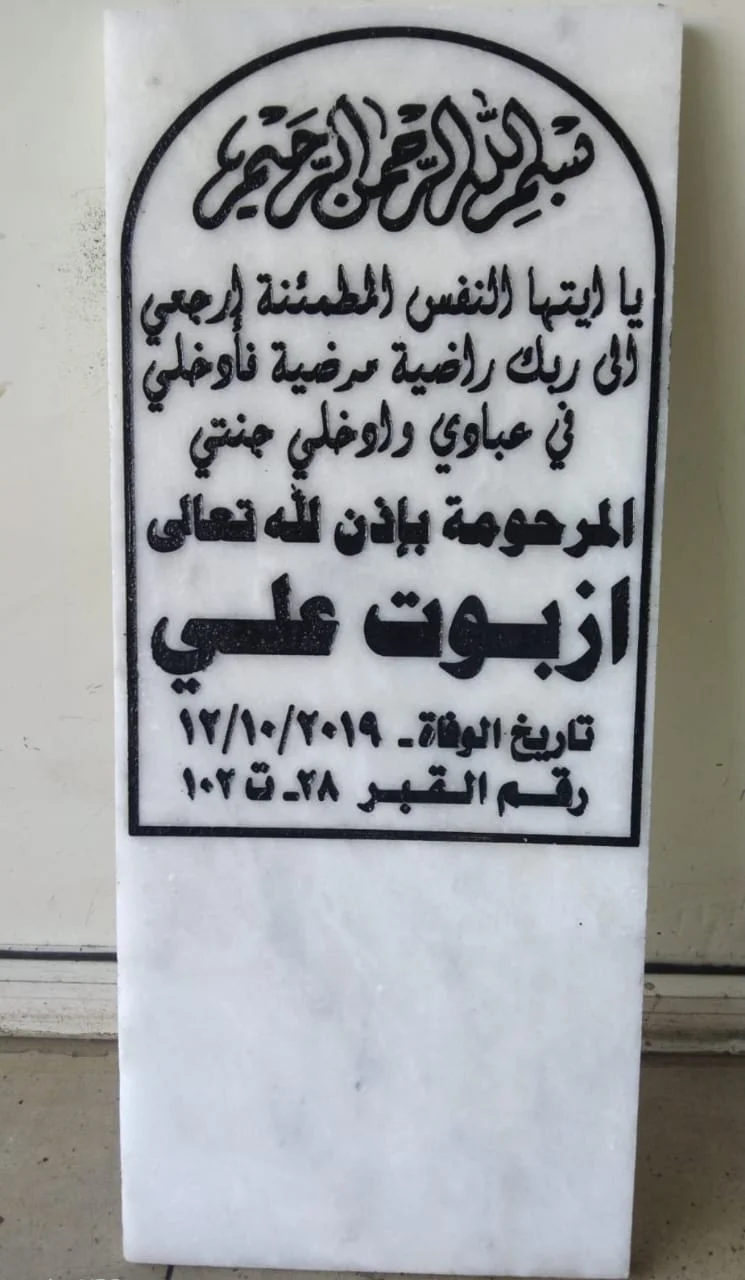 بسم الله الرحمن الرحيم
يا ايتها النفس المطمئنة إرجعي
الى ربك راضية مرضية فأدخلي
في عبادي وادخلي جنتي
المرحومة بإذن لله تعالى
ازبوت علي
تاريخ الوفاة ـ ١٢/١٠/٢٠١٩
رقم القبر ٢٨ـ ت ١٠٢